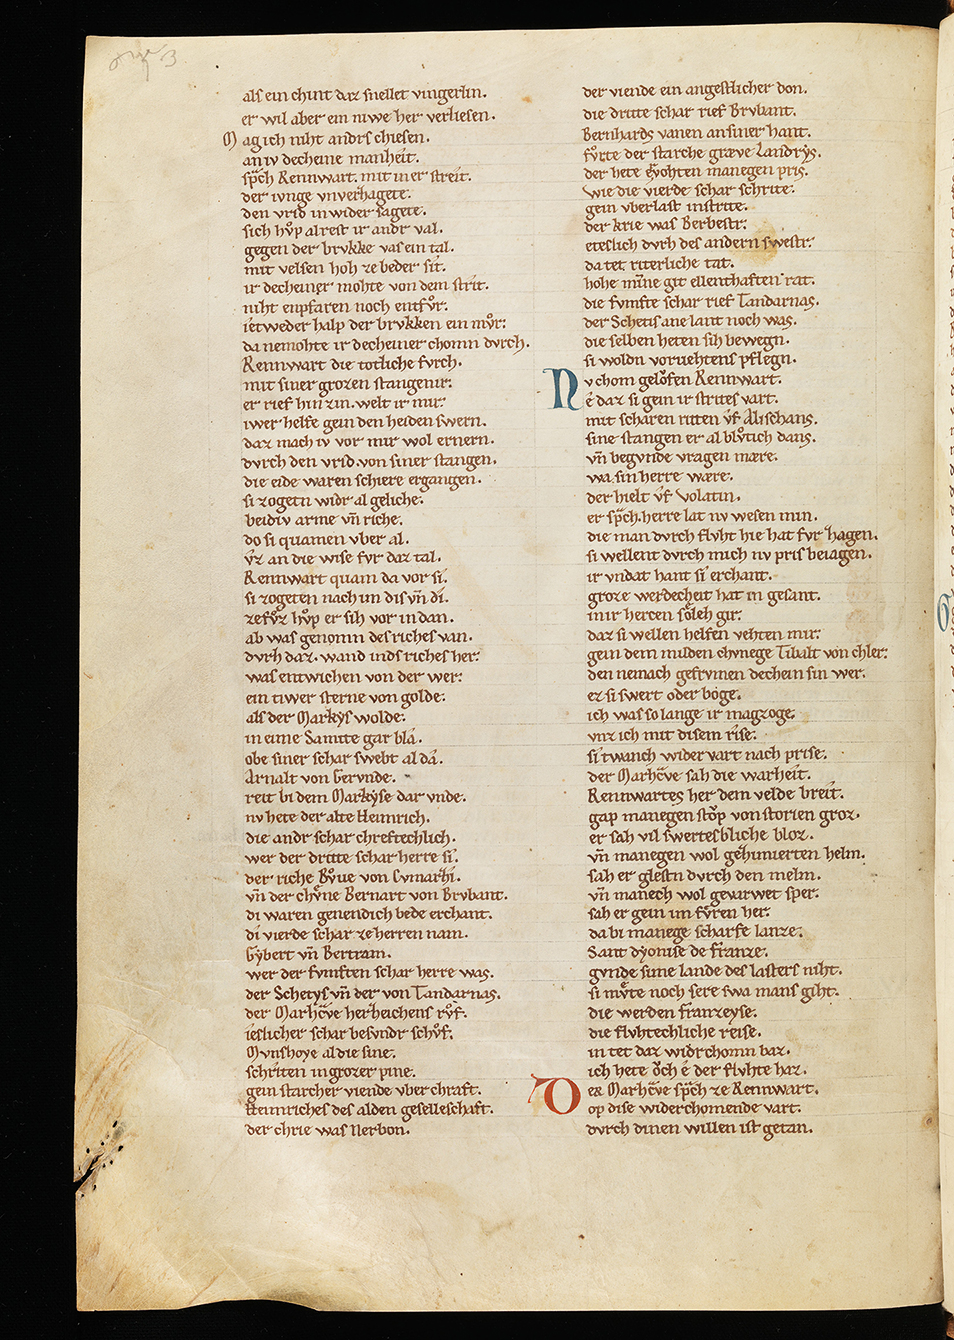 als ein chint daz snellet vingerlin.
er wil aber ein niwe her verliesen.
Mag ich niht andrs chiesen.
an iv decheine manheit.
sp̄ch Rennwart. mit iu er streit.
der ivnge vnverzagete.
den vrid in wider sagete.
sich hv̊p alrest ir andr val.
gegen der brvkke vas ein tal.
mit velsen hoh ze beder sit.
ir decheiner mohte von dem strit.
niht enpfaren noch entfv̊r.
ietweder halp der brvkken ein mv̊r.
da nemohte ir decheiner chomn dvrch.
Rennwart die totliche fvrch.
mit siner grozen stangen ir.
er rief hin zin. welt ir mir.
iwer helfe gein den heiden swern.
daz mach iv vor mir wol ernern.
dvrch den vrid. von siner stangen.
die eide waren schiere ergangen.
si zogetn widr al geliche.
beidiv arme vn̄ riche.
do si quamen vber al.
v̊z an die wise fvr daz tal.
Rennwart quam da vor si.
si zogeten nach im dis vn̄ di.
zefv̊z hv̊p er sih vor in dan.
ab was genomn des riches van.
dvrh daz. wand in ds riches her.
was entwichen von der wer.
ein tiwer sterne von golde.
als der Markys wolde.
in eime Samite gar bla.
obe siner schar swebt al da.
Arnalt von Gerunde.
reit bi dem Markyse dar vnde.
nv hete der alte Heimrich.
die andr schar chreftechlich.
wer der dritte schar herre si.
der riche Bv̊ve von Cvmarhi.
vn̄ der chv̊ne Bernart von Brvbant.
di waren genendich bede erchant.
di vierde schar ze herren nam.
Gybert vn̄ Bertram.
wer der fvmften schar herre was.
der Schetys vn̄ der von Tandarnas.
der Marhc̄ve her heichens rv̊f.
ieslicher schar besvndr schv̊f.
Mvnshoye al die sine.
schriten in grozer pine.
gein starcher viende vber chraft.
Heimriches des alden geselleschaft.
der chrie was Nerbon.
der viende ein angestlicher don.
die dritte schar rief Brvbant.
Bernhards vanen an siner hant.
fv̊rte der starche græve Landrys.
der hete ervohten manegen pris.
wie die vierde schar schrite.
gein vberlast in strite.
der krie was Berbestr.
eteslich dvrh des andern swestr.
da tet riterliche tat.
hohe minne git ellenthaften rat.
die fvmfte schar rief Tandarnas.
der Schetis ane lant noch was.
die selben heten sih bewegn.
si woldn vor vehtens pflegn.
Nv chom gelofen Rennwart.
e daz si gein ir strites vart.
mit scharen ritten v̊f Alischans.
sine stangen er al blv̊tich dans.
vn̄ begvnde vragen mære.
wa sin herre wære.
der hielt v̊f Volatin.
er sp̄ch. herre lat nv wesen min.
die man dvrch flvht hie hat fvr hagen.
si wellent dvrch mich nv pris beiagen.
ir vndat hant si erchant.
groze werdecheit hat in gesant.
in ir hercen sœleh gir.
daz si wellen helfen vehten mir.
gein dem milden chvnege Tibalt von chler.
den nemach gefrvmen dechein sin wer.
ez si swert oder boge.
ich was so lange ir magzoge.
vnz ich mit disem rise.
si twanch wider vart nach prise.
der Marhc̄ve sah die warheit.
Rennwartes her dem velde breit.
gap manegen stop von storien groz.
er sah vil swertes bliche bloz.
vn̄ manegen wol gezimierten helm.
sah er glestn dvrch den melm.
vn̄ manech wol gevarwet sper.
sah er gein im fv̊ren her.
da bi manege scharfe lanze.
Sant dyonise de franze.
gvnde sime lande des lasters niht.
si mv̊te noch sere swa mans giht.
die werden franzeyse.
die flvhtechliche reise.
in tet daz widrchomn baz.
ich hete och e der flvhte haz.
Der Marhc̄ve sp̄ch ze Rennwart.
op dise widerchomende vart.
dvrch dinen willen ist getan.